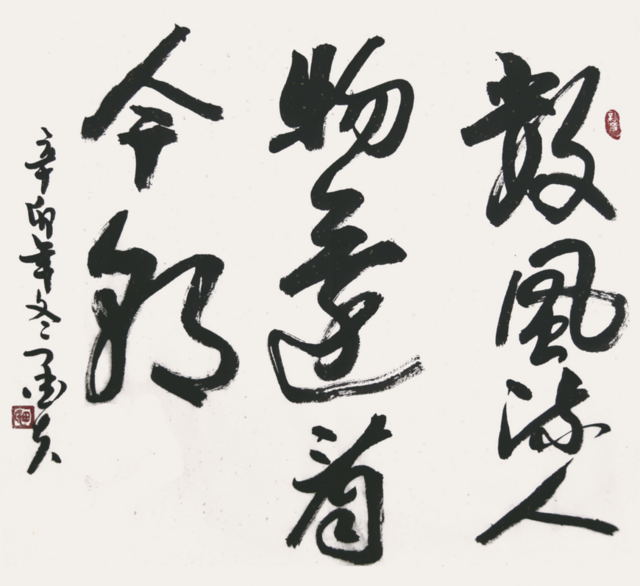 數風流人
物還看
今朝
辛卯年冬